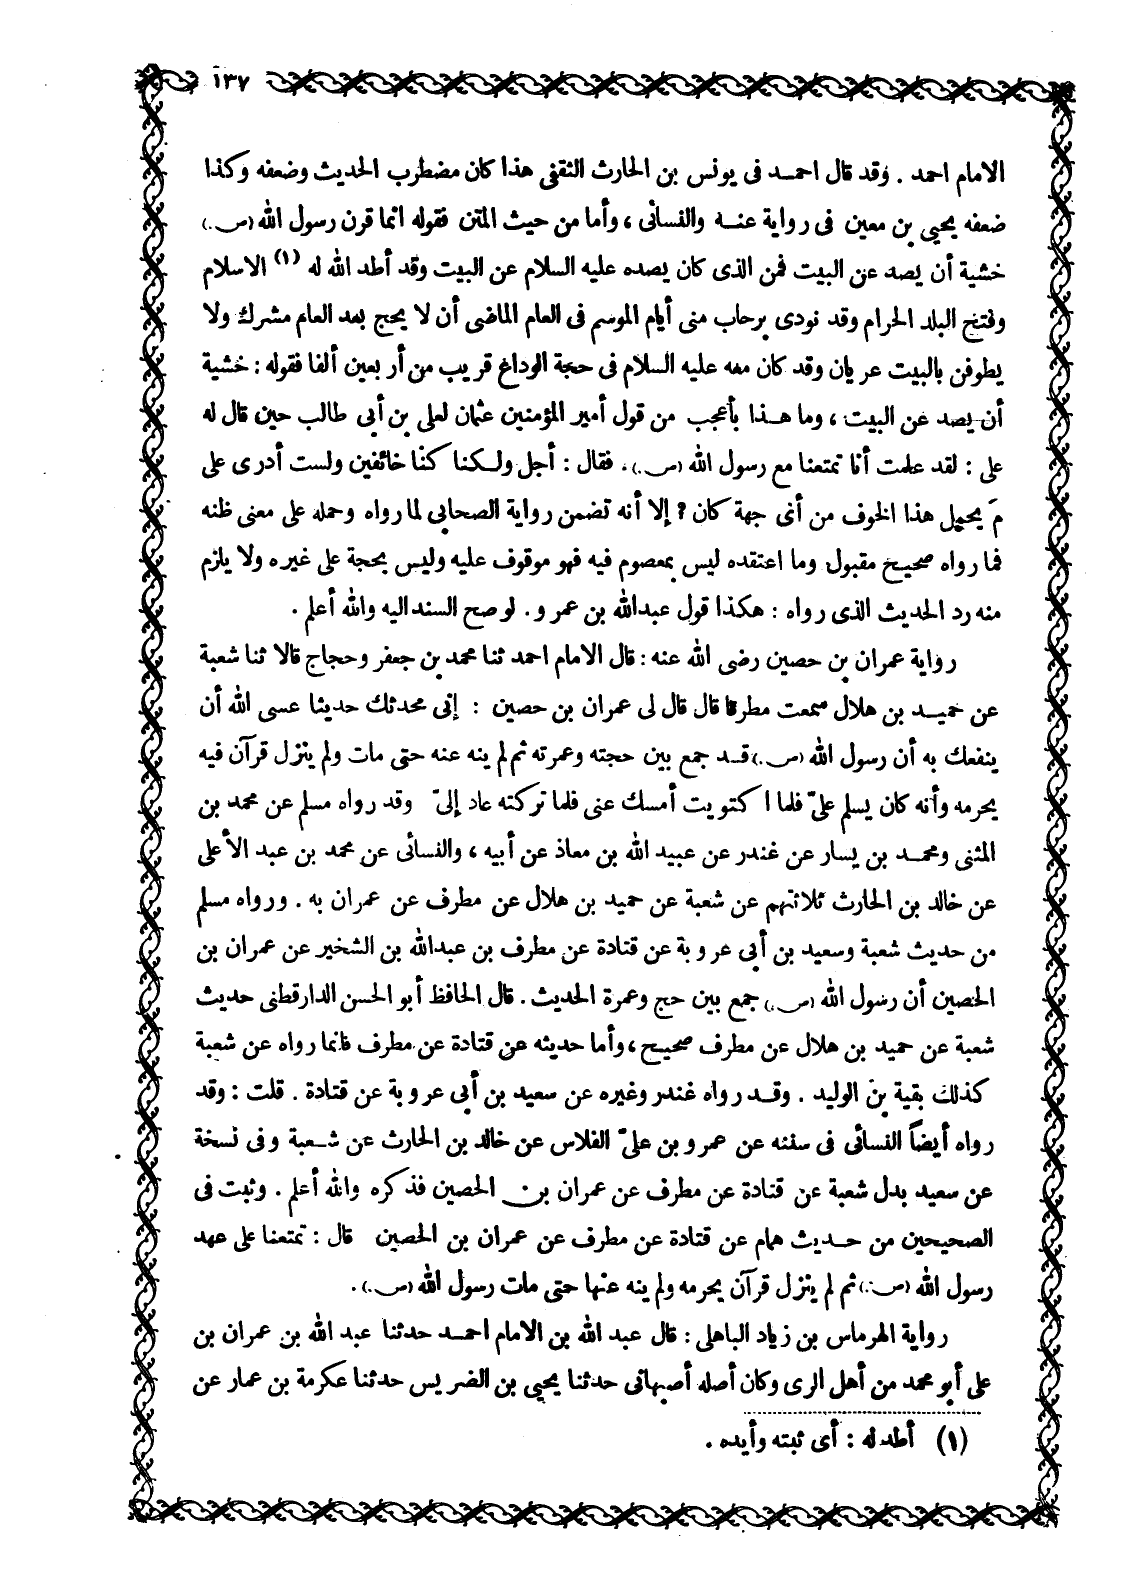 ١٣٧
الامام احمد . وقد قال احمـد فى يونس بن الحارث الثقفى هذا كان مضطرب الحديث وضعفه وكذا
ضعفه يحيى بن معين فى رواية عنـه والنسائى ، وأما من حيث المتن فقوله انما قرن رسول الله (ص.)
خشية أن يصد عن البيت فمن الذى كان يصده عليه السلام عن البيت وقد أطد الله له (١) الاسلام
وفتح البلد الحرام وقد نودى برحاب منى أيام الموسم فى العام الماضى أن لا يحج بعد العام مشرك ولا
يطوفن بالبيت عريان وقد كان معه عليه السلام فى حجة الوداع قريب من أربعين ألفا فقوله : خشية
أن يصد عن البيت ، وما هـذا بأعجب من قول أمير المؤمنين عثمان لعلى بن أبى طالب حين قال له
على : لقد علمت أنا تمتعنا مع رسول الله (ص.) . فقال : أجل ولـكنا كنا خائفين ولست أدرى على
مَ يحمل هذا الخوف من أى جهة كان ؟ إلا أنه تضمن رواية الصحابى لما رواه وحمله على معنى ظنه
فما رواه صحيح مقبول وما اعتقده ليس بمعصوم فيه فهو موقوف عليه وليس بحجة على غيره ولا يلزم
منه رد الحديث الذى رواه : هكذا قول عبدالله بن عمرو . لو صح السند اليه والله أعلم .
رواية عمران بن حصين رضى الله عنه : قال الامام احمد ثنا محمد بن جعفر وحجاج قالا ثنا شعبة
عن حميـد بن هلال سمعت مطرفا قال قال لى عمران بن حصين : إنى محدثك حديثا عسى الله أن
ينفعك به أن رسول الله (ص.) قـد جمع بين حجته وعمرته ثم لم ينه عنه حتى مات ولم ينزل قرآن فيه
يحرمه وأنه كان يسلم علىّ فلما اكتويت أمسك عنى فلما تركته عاد إلىّ وقد رواه مسلم عن محمد بن
المثنى ومحمـد بن يسار عن غندر عن عبيد الله بن معاذ عن أبيه ، والنسائى عن محمد بن عبد الأعلى
عن خالد بن الحارث ثلاثتهم عن شعبة عن حميد بن هلال عن مطرف عن عمران به . ورواه مسلم
من حديث شعبة وسعيد بن أبى عروبة عن قتادة عن مطرف بن عبدالله بن الشخير عن عمران بن
الحصين أن رسول الله (ص.) جمع بين حج وعمرة الحديث . قال الحافظ أبو الحسن الدارقطنى حديث
شعبة عن حميد بن هلال عن مطرف صحيح ، وأما حديثه عن قتادة عن مطرف فانما رواه عن شعبة
كذلك بقية بن الوليد . وقـد رواه غندر وغيره عن سعيد بن أبى عروبة عن قتادة . قلت : وقد
رواه أيضاً النسائى فى سننه عن عمرو بن علىّ الفلاس عن خالد بن الحارث عن شـعبة وفى نسخة
عن سعيد بدل شعبة عن قتادة عن مطرف عن عمران بن الحصين فذكره والله أعلم . وثبت فى
الصحيحين من حـديث همام عن قتادة عن مطرف عن عمران بن الحصين قال : تمتعنا على عهد
رسول الله (ص.) ثم لم ينزل قرآن يحرمه ولم ينه عنها حتى مات رسول الله (ص.) .
رواية الهرماس بن زياد الباهلى : قال عبد الله بن الامام احمـد حدثنا عبد الله بن عمران بن
على أبو محمد من أهل الرى وكان أصله أصبهانى حدثنا يحيى بن الضريس حدثنا عكرمة بن عمار عن
(١) أطد له : أى ثبته وأيده .